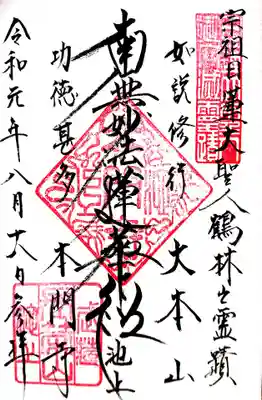 宗祖日蓮大聖人鶴林之霊蹟
如説修行 大本山
南無妙法蓮華経 池上
功徳甚多 本門寺
令和元年八月十六日参拝